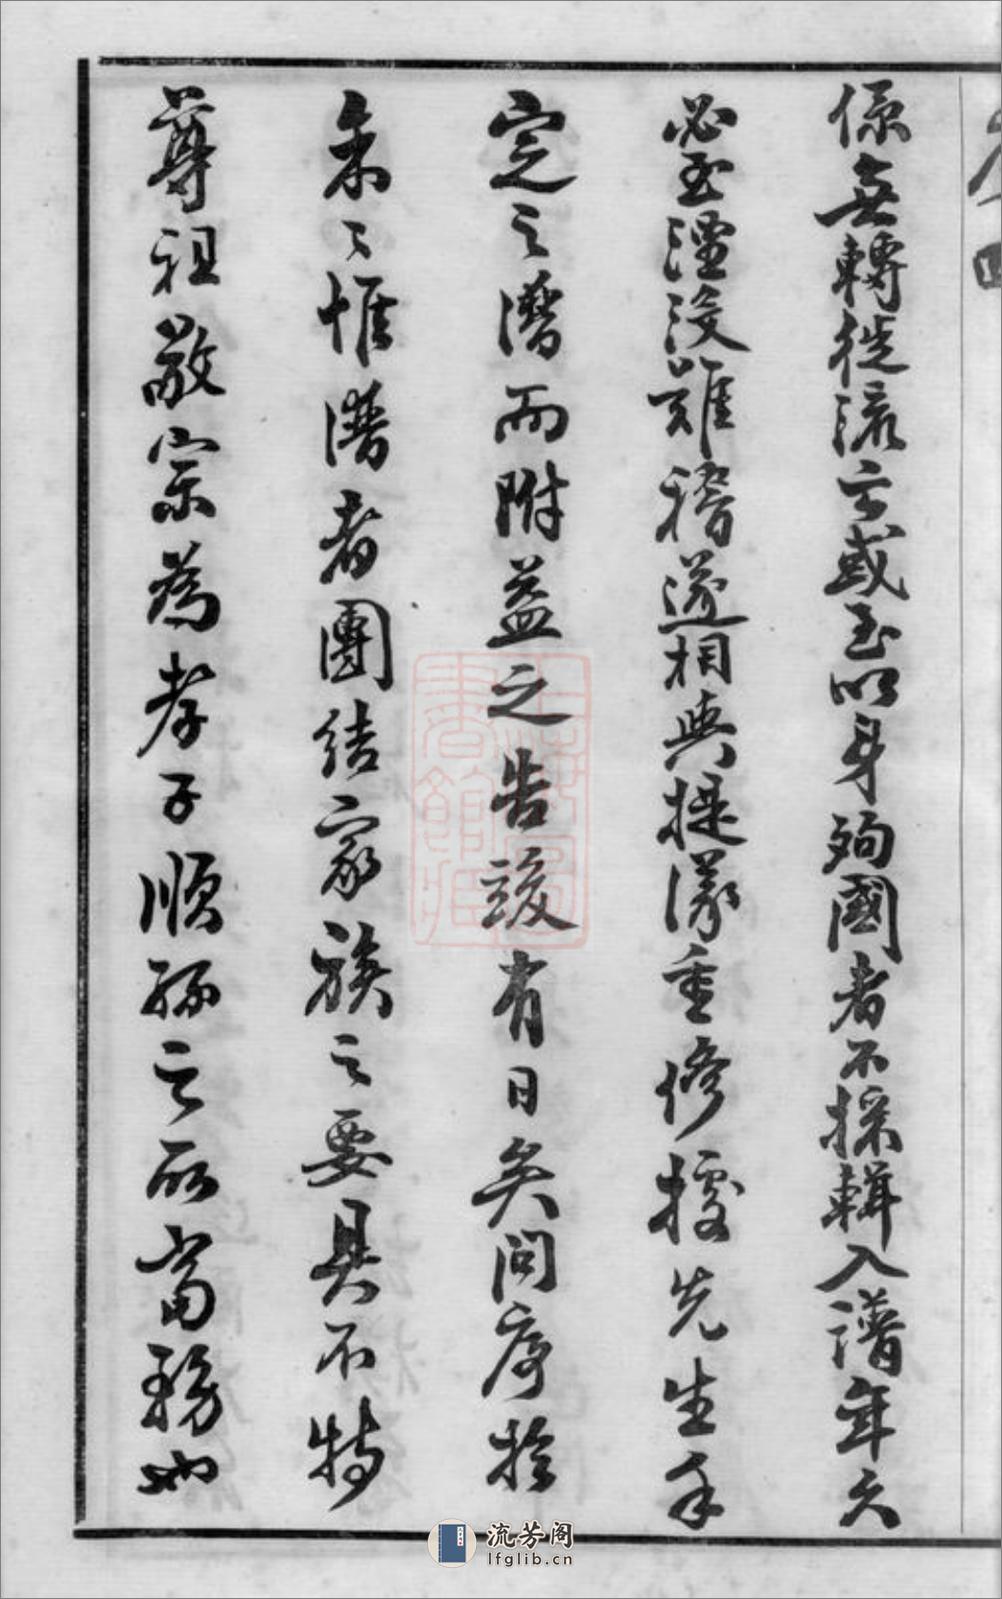 係無轉徙流亡或至以身殉國者不採輯入譜年久
必至湮沒難稽遂相與提議重修按先生手
定之譜而附益之告竣有日矣問序於
余余惟譜者團結家族之要具不特
尊祖敬宗為孝子順孫之所當務也
流芳阁
lfglib.cn